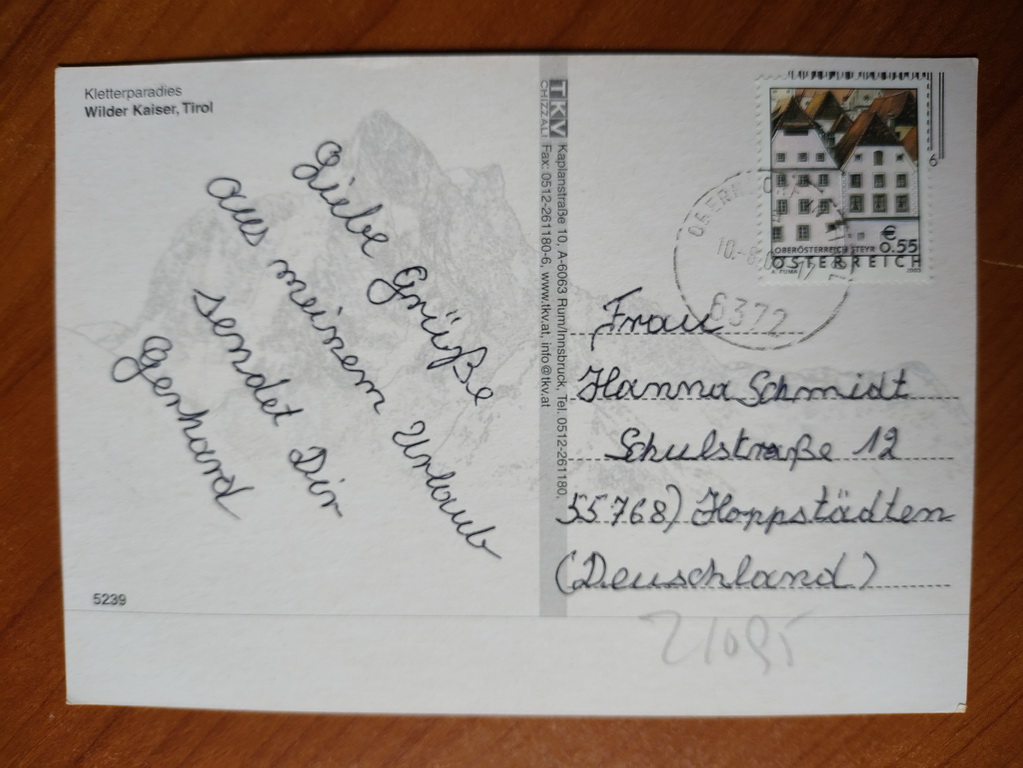 Kletterparadies
Wilder Kaiser, Tirol
Liebe Grüße
aus meinem Urlaub
sendet Dir
Gerhard
5239
TKV
CHIZZALI
Kaplanstraße 10, A-6063 Rum/Innsbruck, Tel. 0512-261180,
Fax: 0512-261180-6, www.tkv.at, info@tkv.at
OBERÖSTERREICH STEYR
€ 0.55
ÖSTERREICH
6
6372
Frau
Hanna Schmidt
Schulstraße 12
55768) Hoppstädten
(Deuschland)